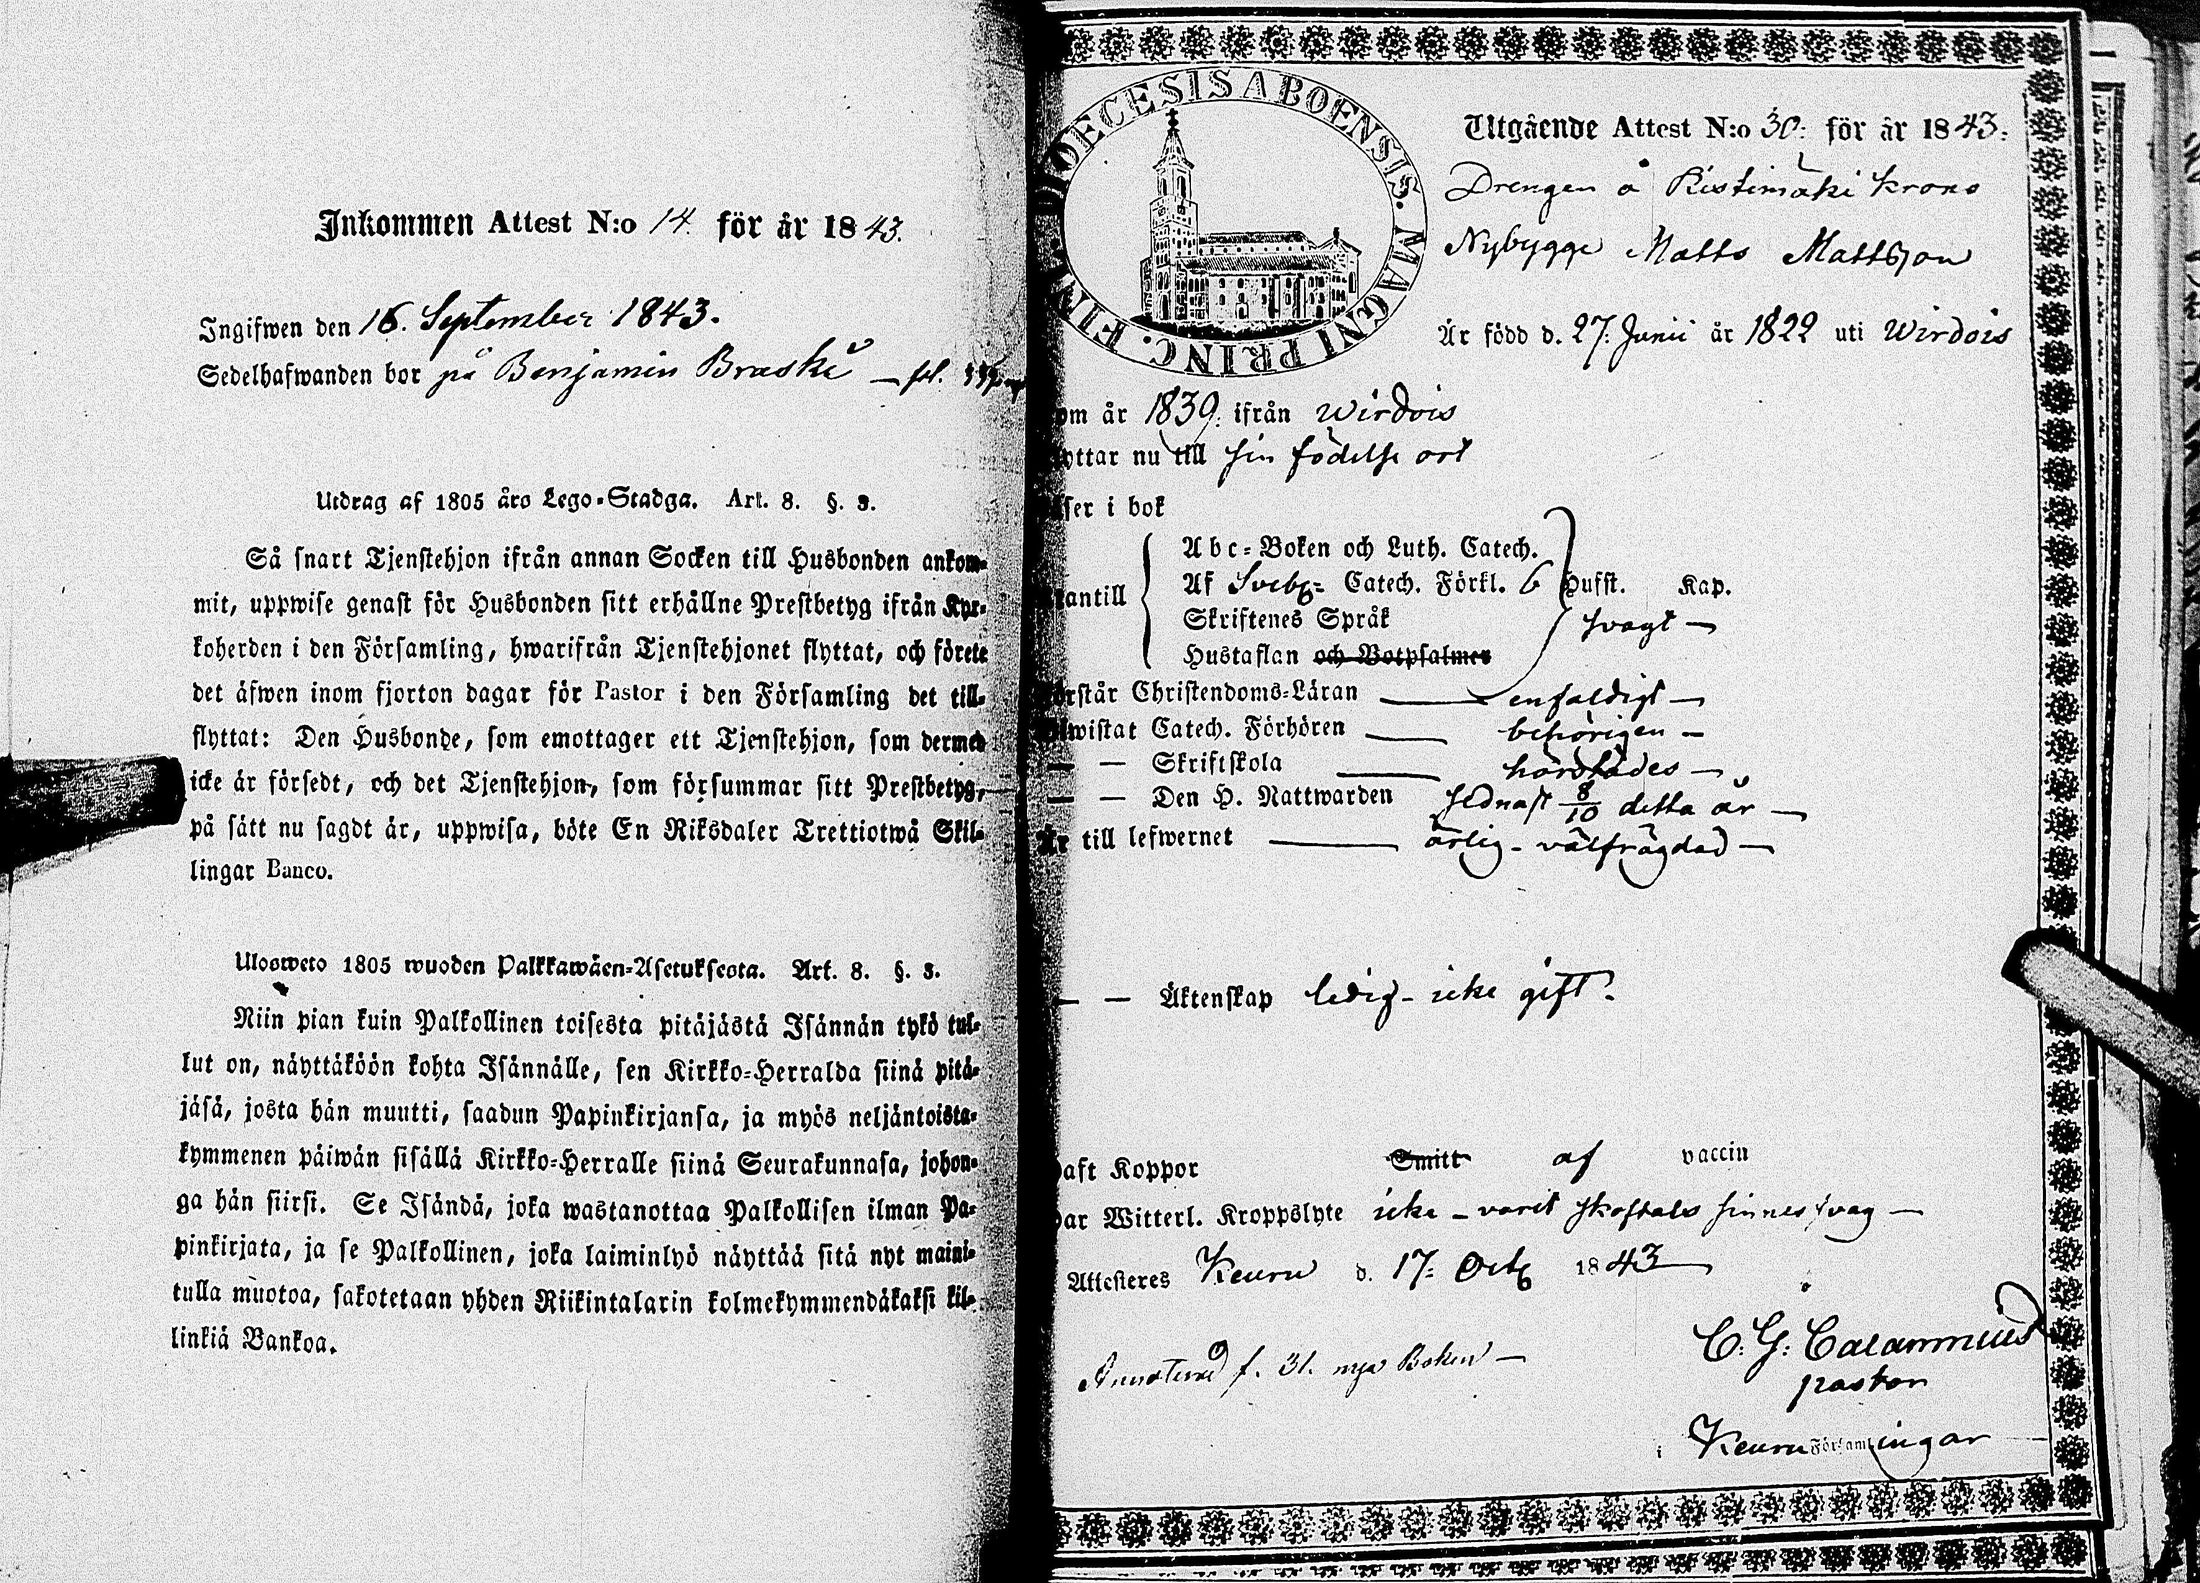 Inkommen Attest N:o 14. för år 1843.
Ingifwen den 16. September 1843.
Sedelhafwanden bor på Benjamin Braski — fol.
Utdrag af 1805 års Lego-Stadga. Art. 8. §. 3.
Så snart Tjenstehjon ifrån annan Socken till Husbonden ankom-
mit, uppwise genast för Husbonden sitt erhållne Prestbetyg ifrån Kyr-
koherden i den Församling, hwarifrån Tjenstehjonet flyttat, och förete
det äfwen inom fjorton dagar för Pastor i den Församling det till-
flyttat: Den Husbonde, som emottager ett Tjenstehjon, som dermed
icke är försedt, och det Tjenstehjon, som försummar sitt Prestbetyg,
på sätt nu sagdt är, uppwisa, böte En Riksdaler Trettiotwå Skil-
lingar Banco.
Ulosweto 1805 wuoden Palkkawäen-Asetuksesta. Art. 8. §. 3.
Niin pian kuin Palkollinen toisesta pitäjästä Isännän tykö tul-
lut on, näyttäköön kohta Isännälle, sen Kirkko-Herralda siinä pitä-
jäsä, josta hän muutti, saadun Papinkirjansa, ja myös neljäntoista-
kymmenen päiwän sisällä Kirkko-Herralle siinä Seurakunnasa, johon-
ga hän siirsi. Se Isändä, joka wastanottaa Palkollisen ilman Pa-
pinkirjata, ja se Palkollinen, joka laiminlyö näyttää sitä nyt maini-
tulla muotoa, sakotetaan yhden Riikintalarin kolmekymmendäkaksi kil-
linkiä Bankoa.
DIOECESIS ABOENSIS. MAGNI PRINC. FINL.
Utgående Attest N:o 30: för år 1843:
Drengen å Ristimäki krono
Nybygge Matts Mattsson
Är född d. 27: Junii år 1822 uti Wirdois
om år 1839: ifrån Wirdois
yttar nu till sin födelse ort
äser i bok
Abc-Boken och Luth. Catech.
antill Af Sveb:s Catech. Förkl. 6 Hufst. Kap.
Skriftenes Språk svagt —
Hustaflan och Botpsalmer
örstår Christendoms-Läran — enfaldigt —
wistat Catech. Förhören — behörigen —
— — Skriftskola — härstädes —
— — Den H. Nattwarden sednast 8/10 detta år —
Är till lefwernet — ärlig - välfrägdad —
— — Äktenskap ledig - icke gift.
aft Koppor Smitt af vaccin
ar Witterl. Kroppslyte icke - varit skaftals sinnes svag —
Attesteres Keuru d. 17: Octb 1843
C. G. Calamnius
pastor
Annoterad f. 31. nya Boken —
i Keuru Församlingar